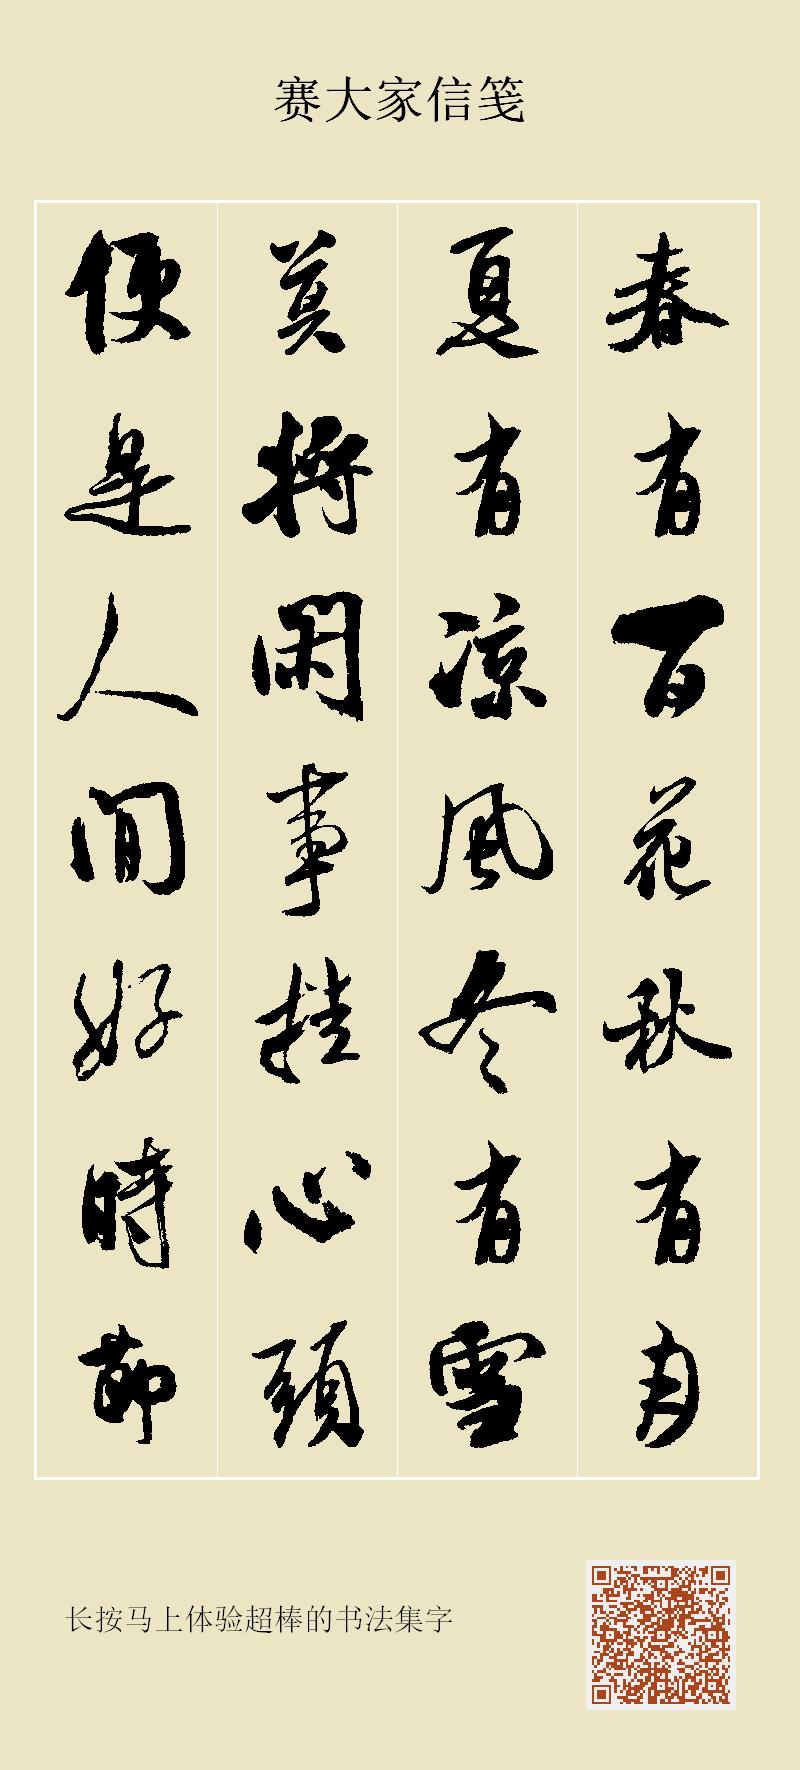 赛大家信笺
春有百花秋有月
夏有凉風冬有雪
莫將閑事挂心頭
便是人間好時節
长按马上体验超棒的书法集字